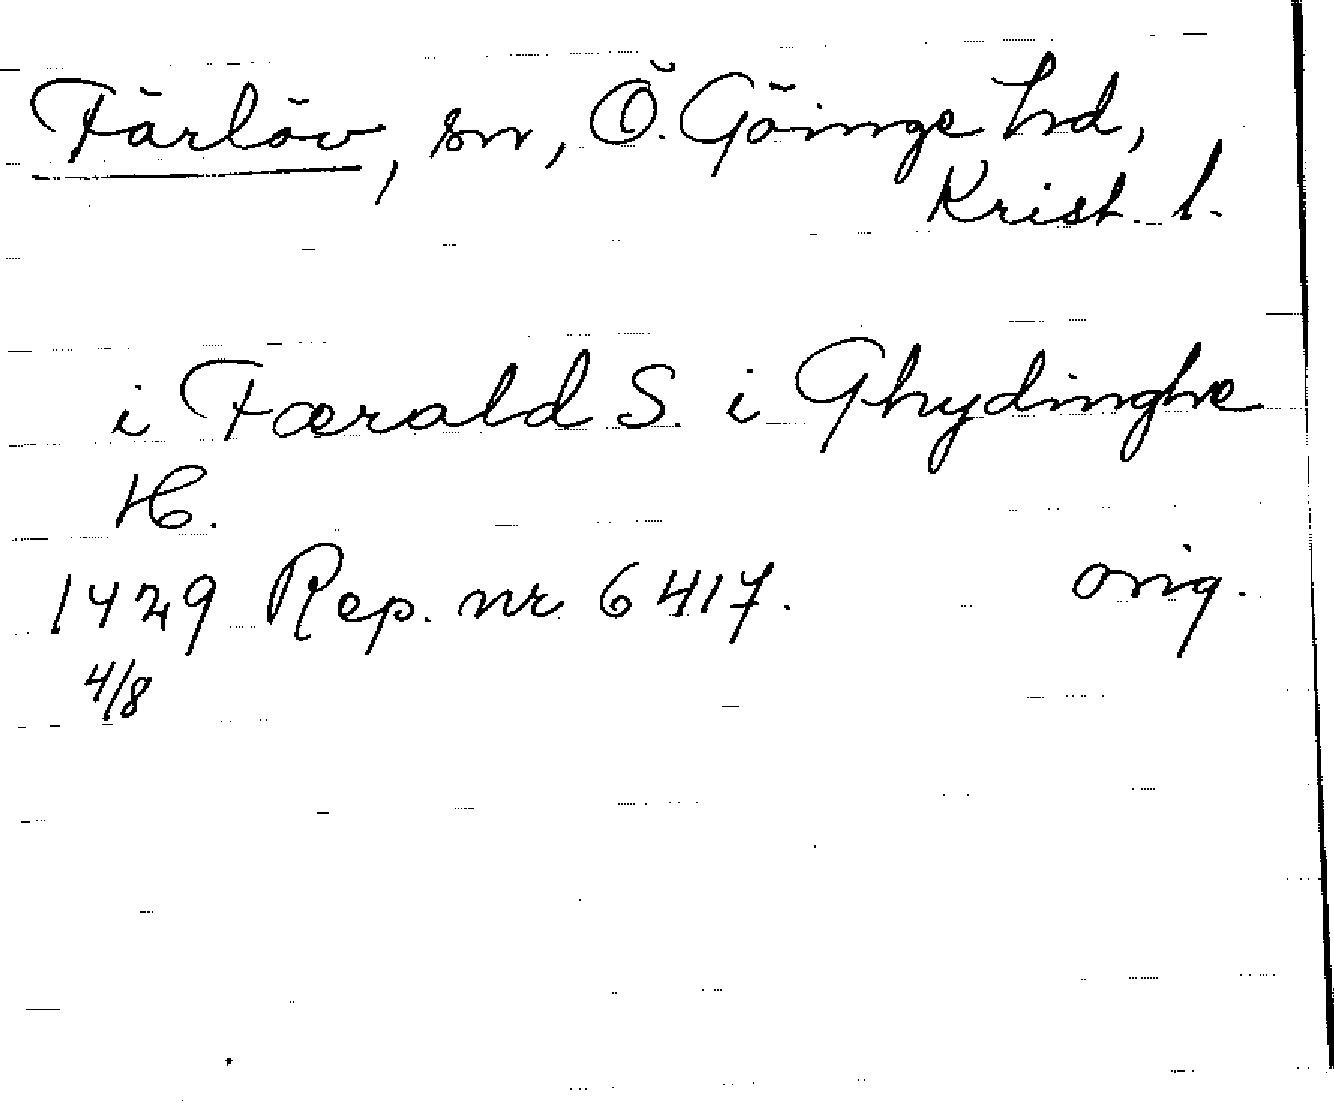 Färlöv, sn, Ö. Göinge hd,
Krist. l.
i Færald S. i Ghydinghe
H.
1429 Rep. nr 6417. orig.
4/8